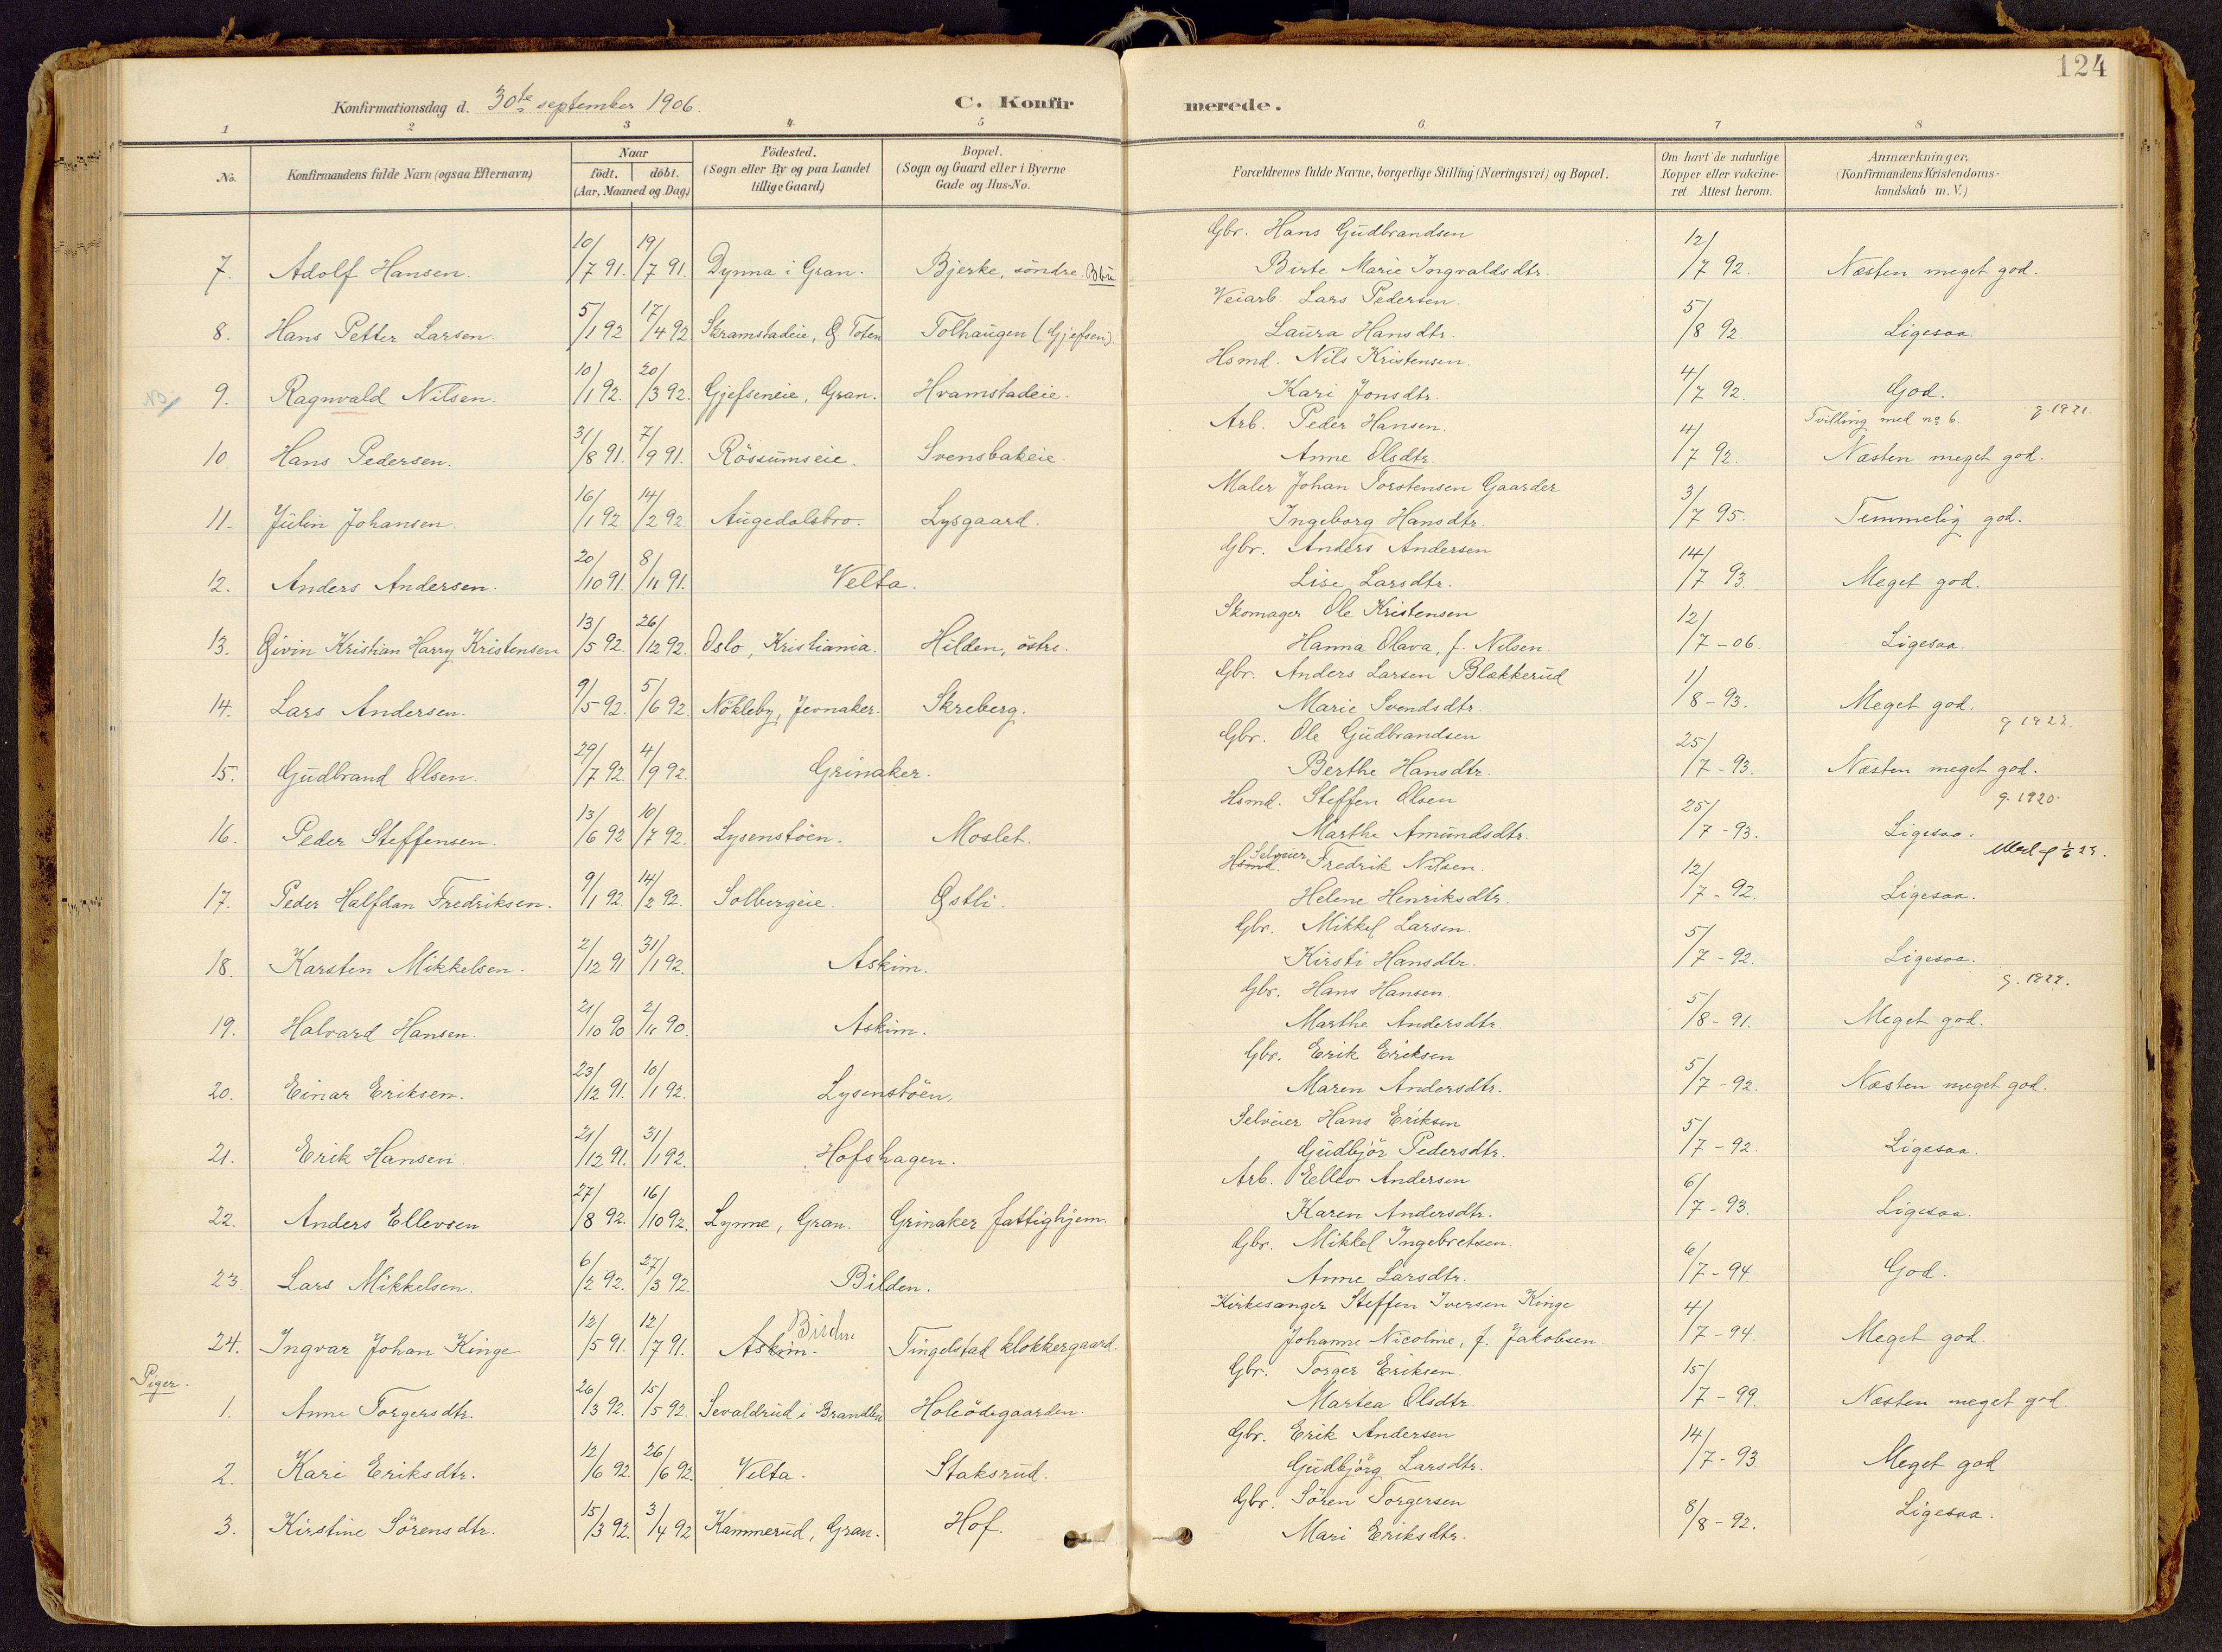 124
Konfirmationsdag d. 30te september 1906.
C. Konfir
merede.
1 2 3 4 5 6 7 8
No. Konfirmandens fulde Navn (ogsaa Efternavn) Naar født. døbt. (Aar, Maaned og Dag) Födested. (Sogn eller By og paa Landet tillige Gaard) Bopæl. (Sogn og Gaard eller i Byerne Gade og Hus-No. Forældrenes fulde Navne, borgerlige Stilling (Næringsvei) og Bopæl. Om havt de naturlige Kopper eller vakcineret. Attest herom. Anmærkninger. (Konfirmandens Kristendomskundskab m. V.)
Gbr. Hans Gudbrandsen
7. Adolf Hansen. 10/7 91. 19/7 91. Dynna i Gran. Bjerke, söndre. Birte Marie Ingvaldsdtr. 12/7 92. Næsten meget god.
Veiarb. Lars Pedersen.
8. Hans Petter Larsen. 5/1 92 17/4 92 Skramstadeie, Ø Toten Tolhaugen (Gjefsen). Laura Hansdtr. 5/8 92. Ligesaa.
Hsmd. Nils Kristensen.
NB 9. Ragnvald Nilsen. 10/1 92. 20/3 92. Gjefseneie, Gran. Hvamstadeie. Kari Jonsdtr. 4/7 92. God.
Arb. Peder Hansen. Tvilling med no 6. g. 1921.
10. Hans Pedersen. 31/8 91. 7/9 91. Rössumseie. Svensbakeie. Anne Olsdtr. 4/7 92. Næsten meget god.
Maler Johan Torstensen Gaarder
11. Julin Johansen. 16/1 92 14/2 92. Augedalsbro. Lysgaard. Ingeborg Hansdtr. 3/7 95. Temmelig god.
Gbr. Anders Andersen
12. Anders Andersen. 20/10 91. 8/11 91. Velta. Lise Larsdtr. 14/7 93. Meget god.
Skomager Ole Kristensen
13. Eivin Kristian Harry Kristensen 13/5 92. 26/12 92. Oslo, Kristiania. Hilden, östre. Hanna Olava, f. Nilsen. 12/7-06. Ligesaa.
Gbr. Anders Larsen Blækkerud
14. Lars Andersen. 9/5 92. 5/6 92. Nökleby, Jevnaker. Skreberg. Marie Svendsdtr. 1/8-93. Meget god.
Gbr. Ole Gudbrandsen g 1922.
15. Gudbrand Olsen. 29/7 92. 4/9 92. Grinaker. Berthe Hansdtr. 25/7-93. Næsten meget god.
Hsmd. Steffen Olsen g. 1920.
16. Peder Steffensen. 13/6 92 10/7 92. Lysenstöen. Moslet. Marthe Amundsdtr. 25/7-93. Ligesaa.
Hsmd. Selveier Fredrik Nilsen.
17. Peder Halfdan Fredriksen. 9/1 92. 14/2 92. Solbergeie. Østli. Helene Henriksdtr. 12/7-92. Ligesaa.
Gbr. Mikkel Larsen.
18. Karsten Mikkelsen. 2/12 91 31/1 92. Askim. Kirsti Hansdtr. 5/7-92. Ligesaa.
Gbr. Hans Hansen. g. 1922.
19. Halvard Hansen. 21/10 90 2/11 90. Askim. Marthe Andersdtr. 5/8-91. Meget god.
Gbr. Erik Eriksen
20. Einar Eriksen. 23/12 91. 10/1 92. Lysenstöen. Maren Andersdtr. 5/7-92. Næsten meget god.
Selveier Hans Eriksen
21. Erik Hansen 21/12 91. 31/1 92. Hofshagen. Gudbjör Pedersdtr. 5/7-92. Ligesaa.
Arb. Ellev Andersen
22. Anders Ellevsen 27/8 92. 16/10 92. Lynne, Gran. Grinaker fattighjem. Karen Andersdtr. 6/7-93. Ligesaa.
Gbr. Mikkel Ingebretsen.
23. Lars Mikkelsen. 6/2 92. 27/3 92. Bilden. Anne Larsdtr. 6/7-94. God.
Kirkesanger Steffen Iversen Kinge
24. Ingvar Johan Kinge 12/5 91. 12/7 91. Askim. Tingelstad klokkergaard. Johanne Nicoline, f. Jakobsen. 4/7-94. Meget god
Piger.
Gbr. Torger Eriksen.
1. Anne Torgersdtr. 26/3 92. 15/5 92. Sevaldrud i Brandbu Holeödegaarden. Martea Olsdtr. 15/7-99. Næsten meget god.
Gbr. Erik Andersen
2. Kari Eriksdtr. 12/6 92. 26/6 92. Velta. Staksrud. Gudbjörg Larsdtr. 14/7-93 Meget god
Gbr. Sören Torgersen
3. Kirstine Sörensdtr. 15/3 92. 3/4 92 Kammerud, Gran. Hof. Mari Eriksdtr. 8/8-92. Ligesaa.